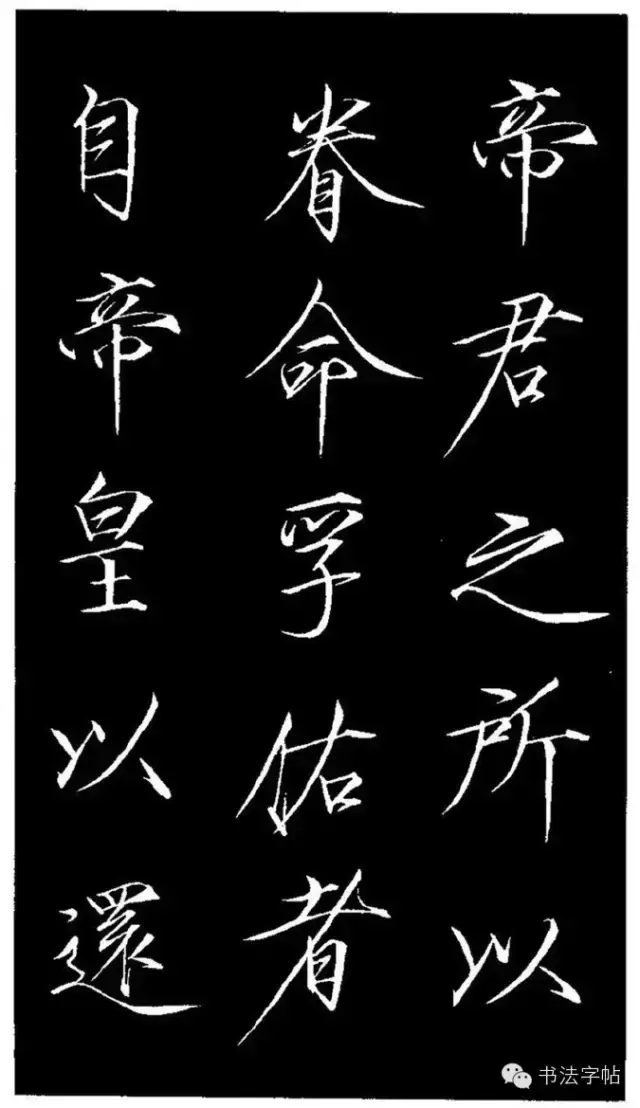 帝君之所以
眷命孚佑者
自帝皇以還
书法字帖